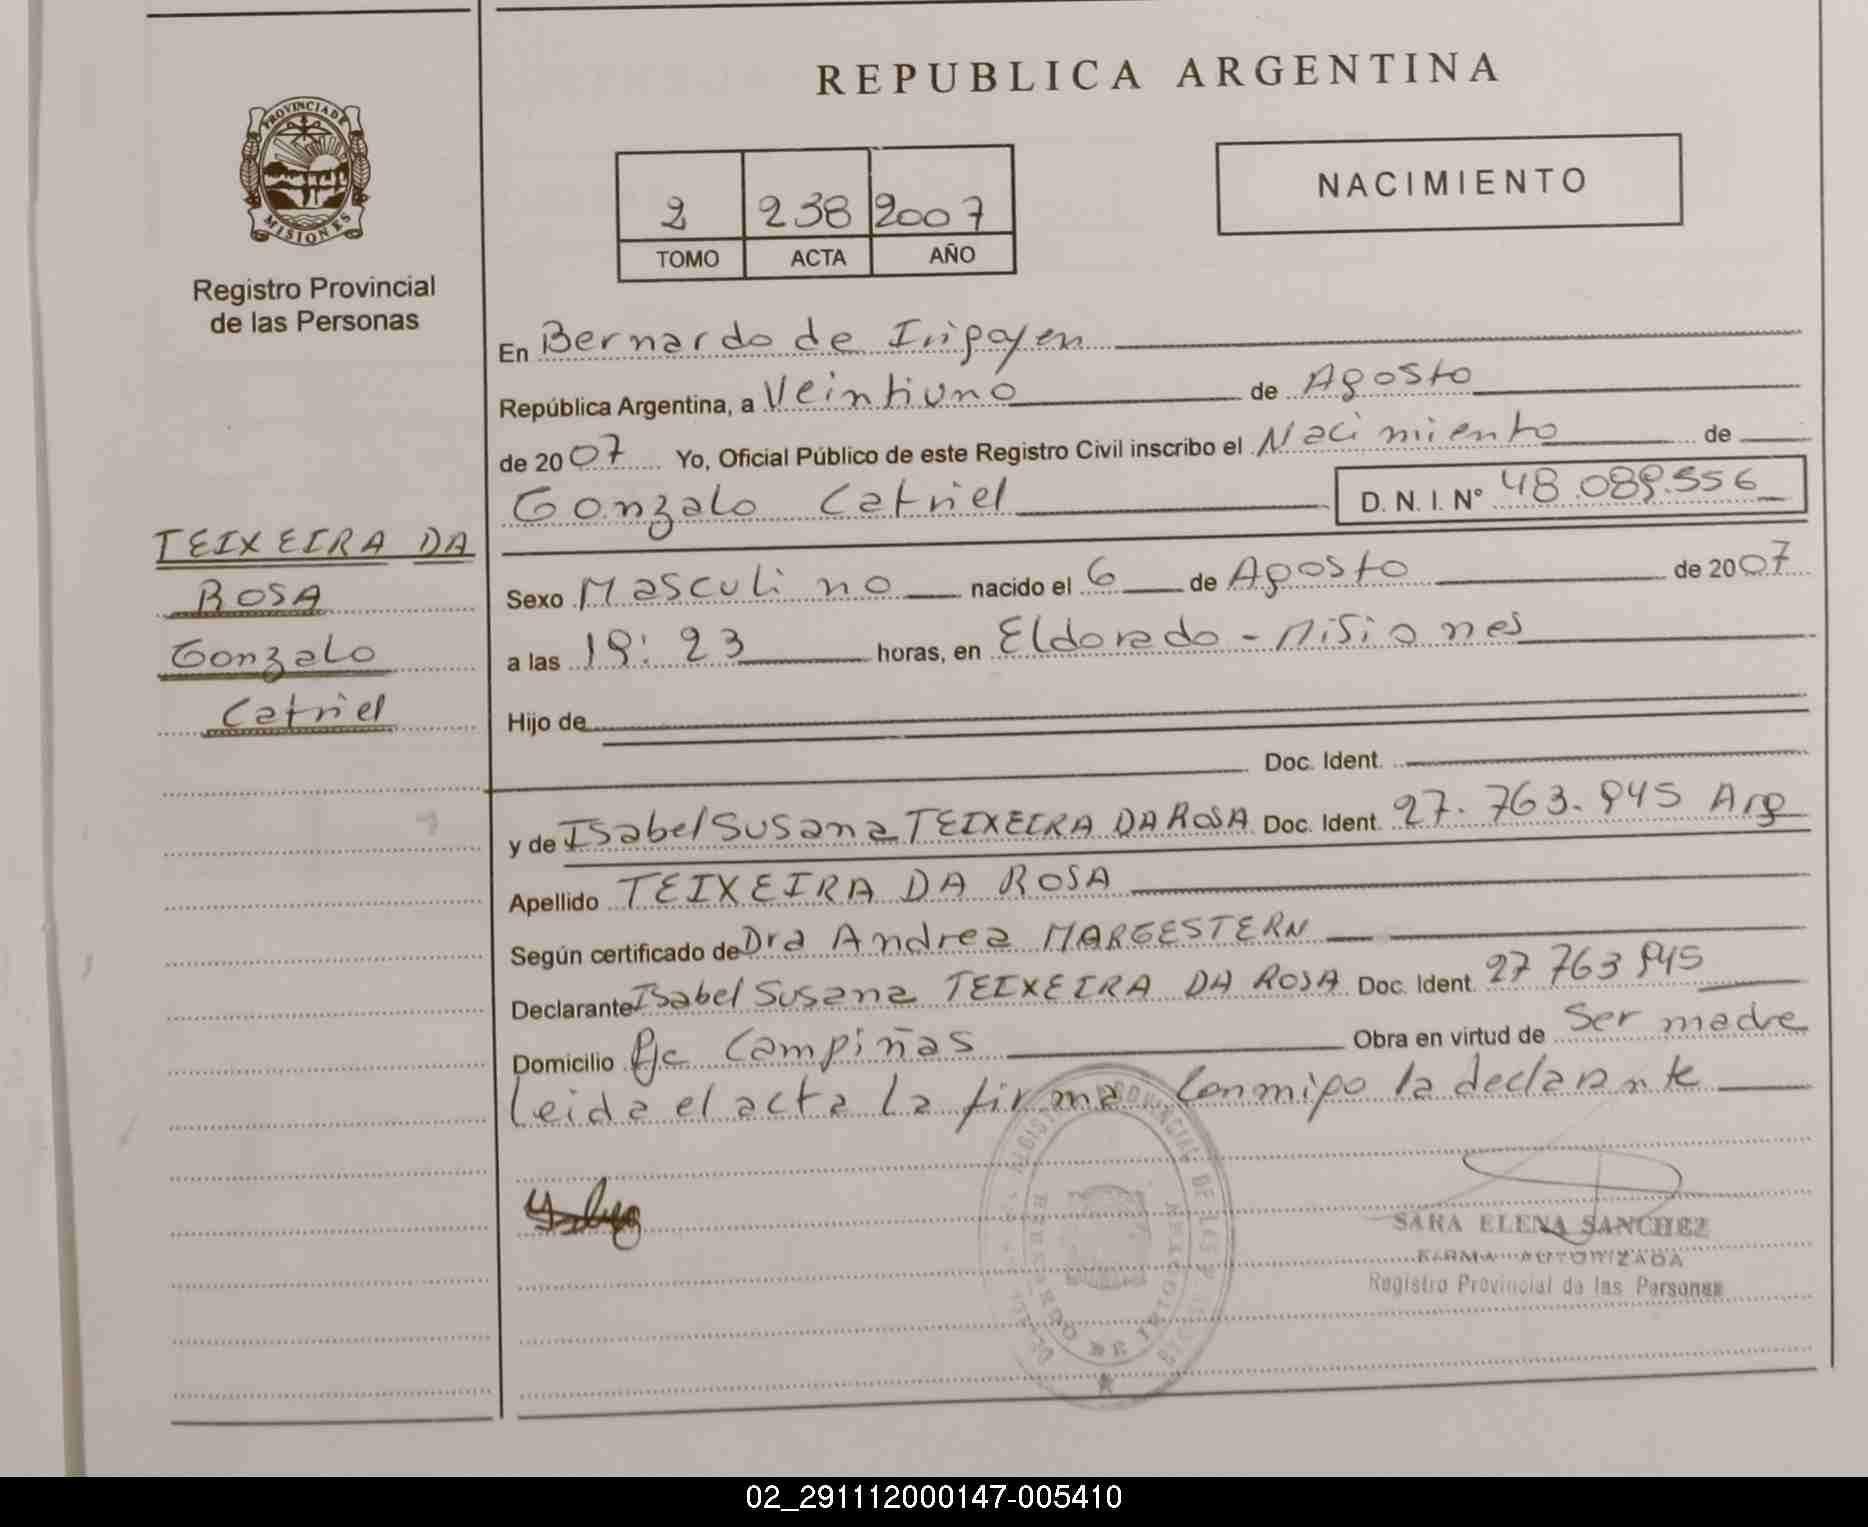 REPUBLICA ARGENTINA
PROVINCIA DE MISIONES
Registro Provincial
de las Personas
NACIMIENTO
2 238 2007
TOMO ACTA AÑO
En Bernardo de Irigoyen
República Argentina, a Veintiuno de Agosto
de 2007 Yo, Oficial Público de este Registro Civil inscribo el Nacimiento de
Gonzalo Catriel D. N. I. N° 48.089.556
TEIXEIRA DA
ROSA
Gonzalo
Catriel
Sexo Masculino nacido el 6 de Agosto de 2007
a las 19:23 horas, en Eldorado - Misiones
Hijo de
Doc. Ident.
y de Isabel Susana TEIXEIRA DA ROSA Doc. Ident. 27.763.945 Arg
Apellido TEIXEIRA DA ROSA
Según certificado de Dra Andrea MARGESTERN
Declarante Isabel Susana TEIXEIRA DA ROSA Doc. Ident. 27 763 945
Domicilio Pje Campiñas Obra en virtud de Ser madre
Leida el acta La firma Conmigo la declarante
REGISTRO PROVINCIAL DE LAS PERSONAS
BERNARDO DE IRIGOYEN
SARA ELENA SANCHEZ
FIRMA AUTORIZADA
Registro Provincial de las Personas
02_291112000147-005410